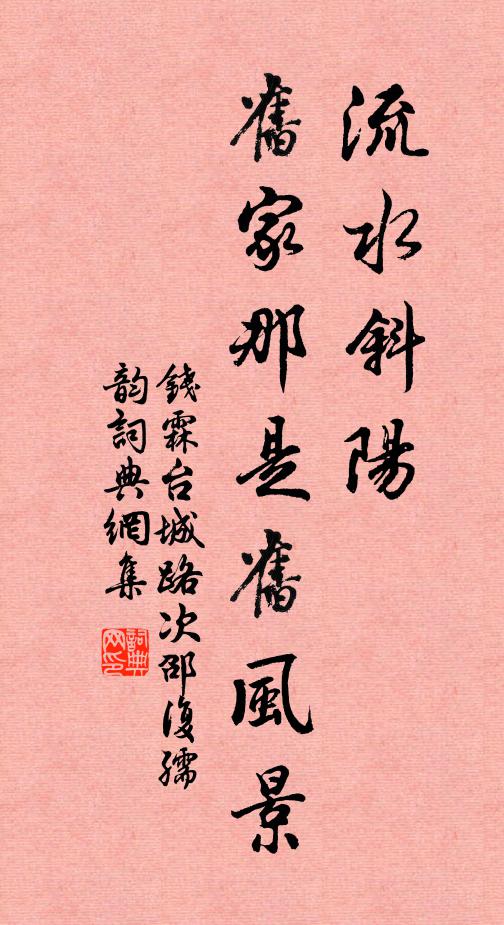 流水斜陽
舊家那是舊風景
錢霖台城路次邵復孺
韵詞典網集
詞典网印